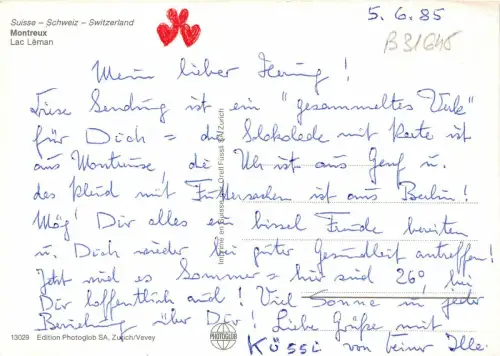 Suisse – Schweiz – Switzerland
Montreux
Lac Léman
5.6.85
B31645
Mein lieber Henning!
Diese Sendung ist ein "gesammeltes Werk"
für Dich = die Schokolade mit Karte ist
aus Montreux, die Uhr ist aus Genf u.
das Kleid mit Futtersachen ist aus Berlin!
Mög' Dir alles ein bissel Freude bereiten
u. Dich wieder bei guter Gesundheit antreffen!
Jetzt wird es Sommer = hier sind 26°, bei
Dir hoffentlich auch! Viel Sonne in jeder
Beziehung über Dir! Liebe Grüße mit
Küssi von Deiner Ille.
Imprimé en Suisse par Orell Füssli SA/Zurich
13029 Edition Photoglob SA, Zurich/Vevey
PHOTOGLOB